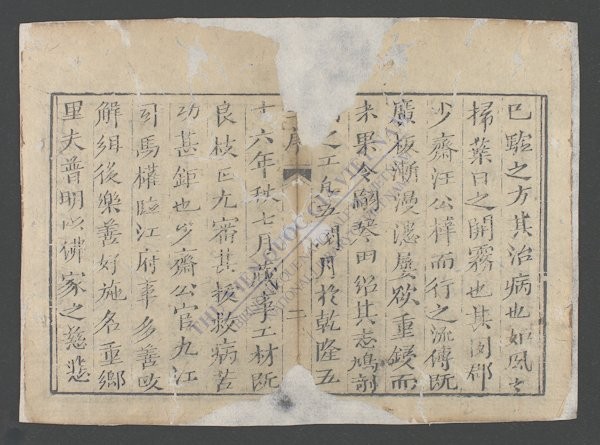 已驗之方其治病也如風之
掃葉日之開霧也其同鄉
少齋汪公梓而行之流傳旣
廣板漸漫漶屢欲重鋟而
未果令嗣琴田紹其志鳩剞
之工凡五閱月於乾隆五
十六年秋七月蕆事工材旣
良校正尤審其拯救病苦
功甚鉅也少齋公官九江
司馬權臨江府事多善政
解組後樂善好施名重鄉
里夫普明以佛家之慈悲
序
二
THƯ VIỆN QUỐC GIA VIỆT NAM
BIBLIOTHÈQUE NATIONALE